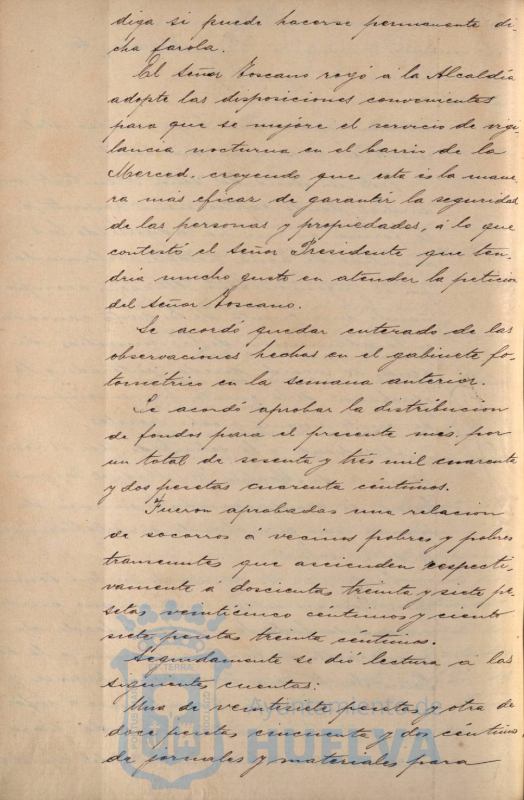 diga si puede hacerse permanente di-
cha farola.
El Señor Toscano rogó á la Alcaldía
adopte las disposiciones convenientes
para que se mejore el servicio de vigi-
lancia nocturna en el barrio de la
Merced, creyendo que esta és la mane-
ra más eficaz de garantir la seguridad
de las personas y propiedades, á lo que
contestó el Señor Presidente que ten-
dría mucho gusto en atender la peticion
del Señor Toscano.
Se acordó quedar enterado de las
observaciones hechas en el gabinete fo-
tométrico en la semana anterior.
Se acordó aprobar la distribucion
de fondos para el presente mes, por
un total de sesenta y tres mil cuarenta
y dos pesetas cuarenta céntimos.
Fueron aprobadas una relacion
de socorros á vecinos pobres y pobres
transeuntes que ascienden respecti-
vamente á doscientas treinta y siete pe-
setas veinticinco céntimos y ciento
siete pesetas treinta céntimos.
Seguidamente se dió lectura á las
siguientes cuentas:
Una de veintisiete pesetas y otra de
doce pesetas cincuenta y dos céntimos
de jornales y materiales para
Ayuntamiento de
HUELVA